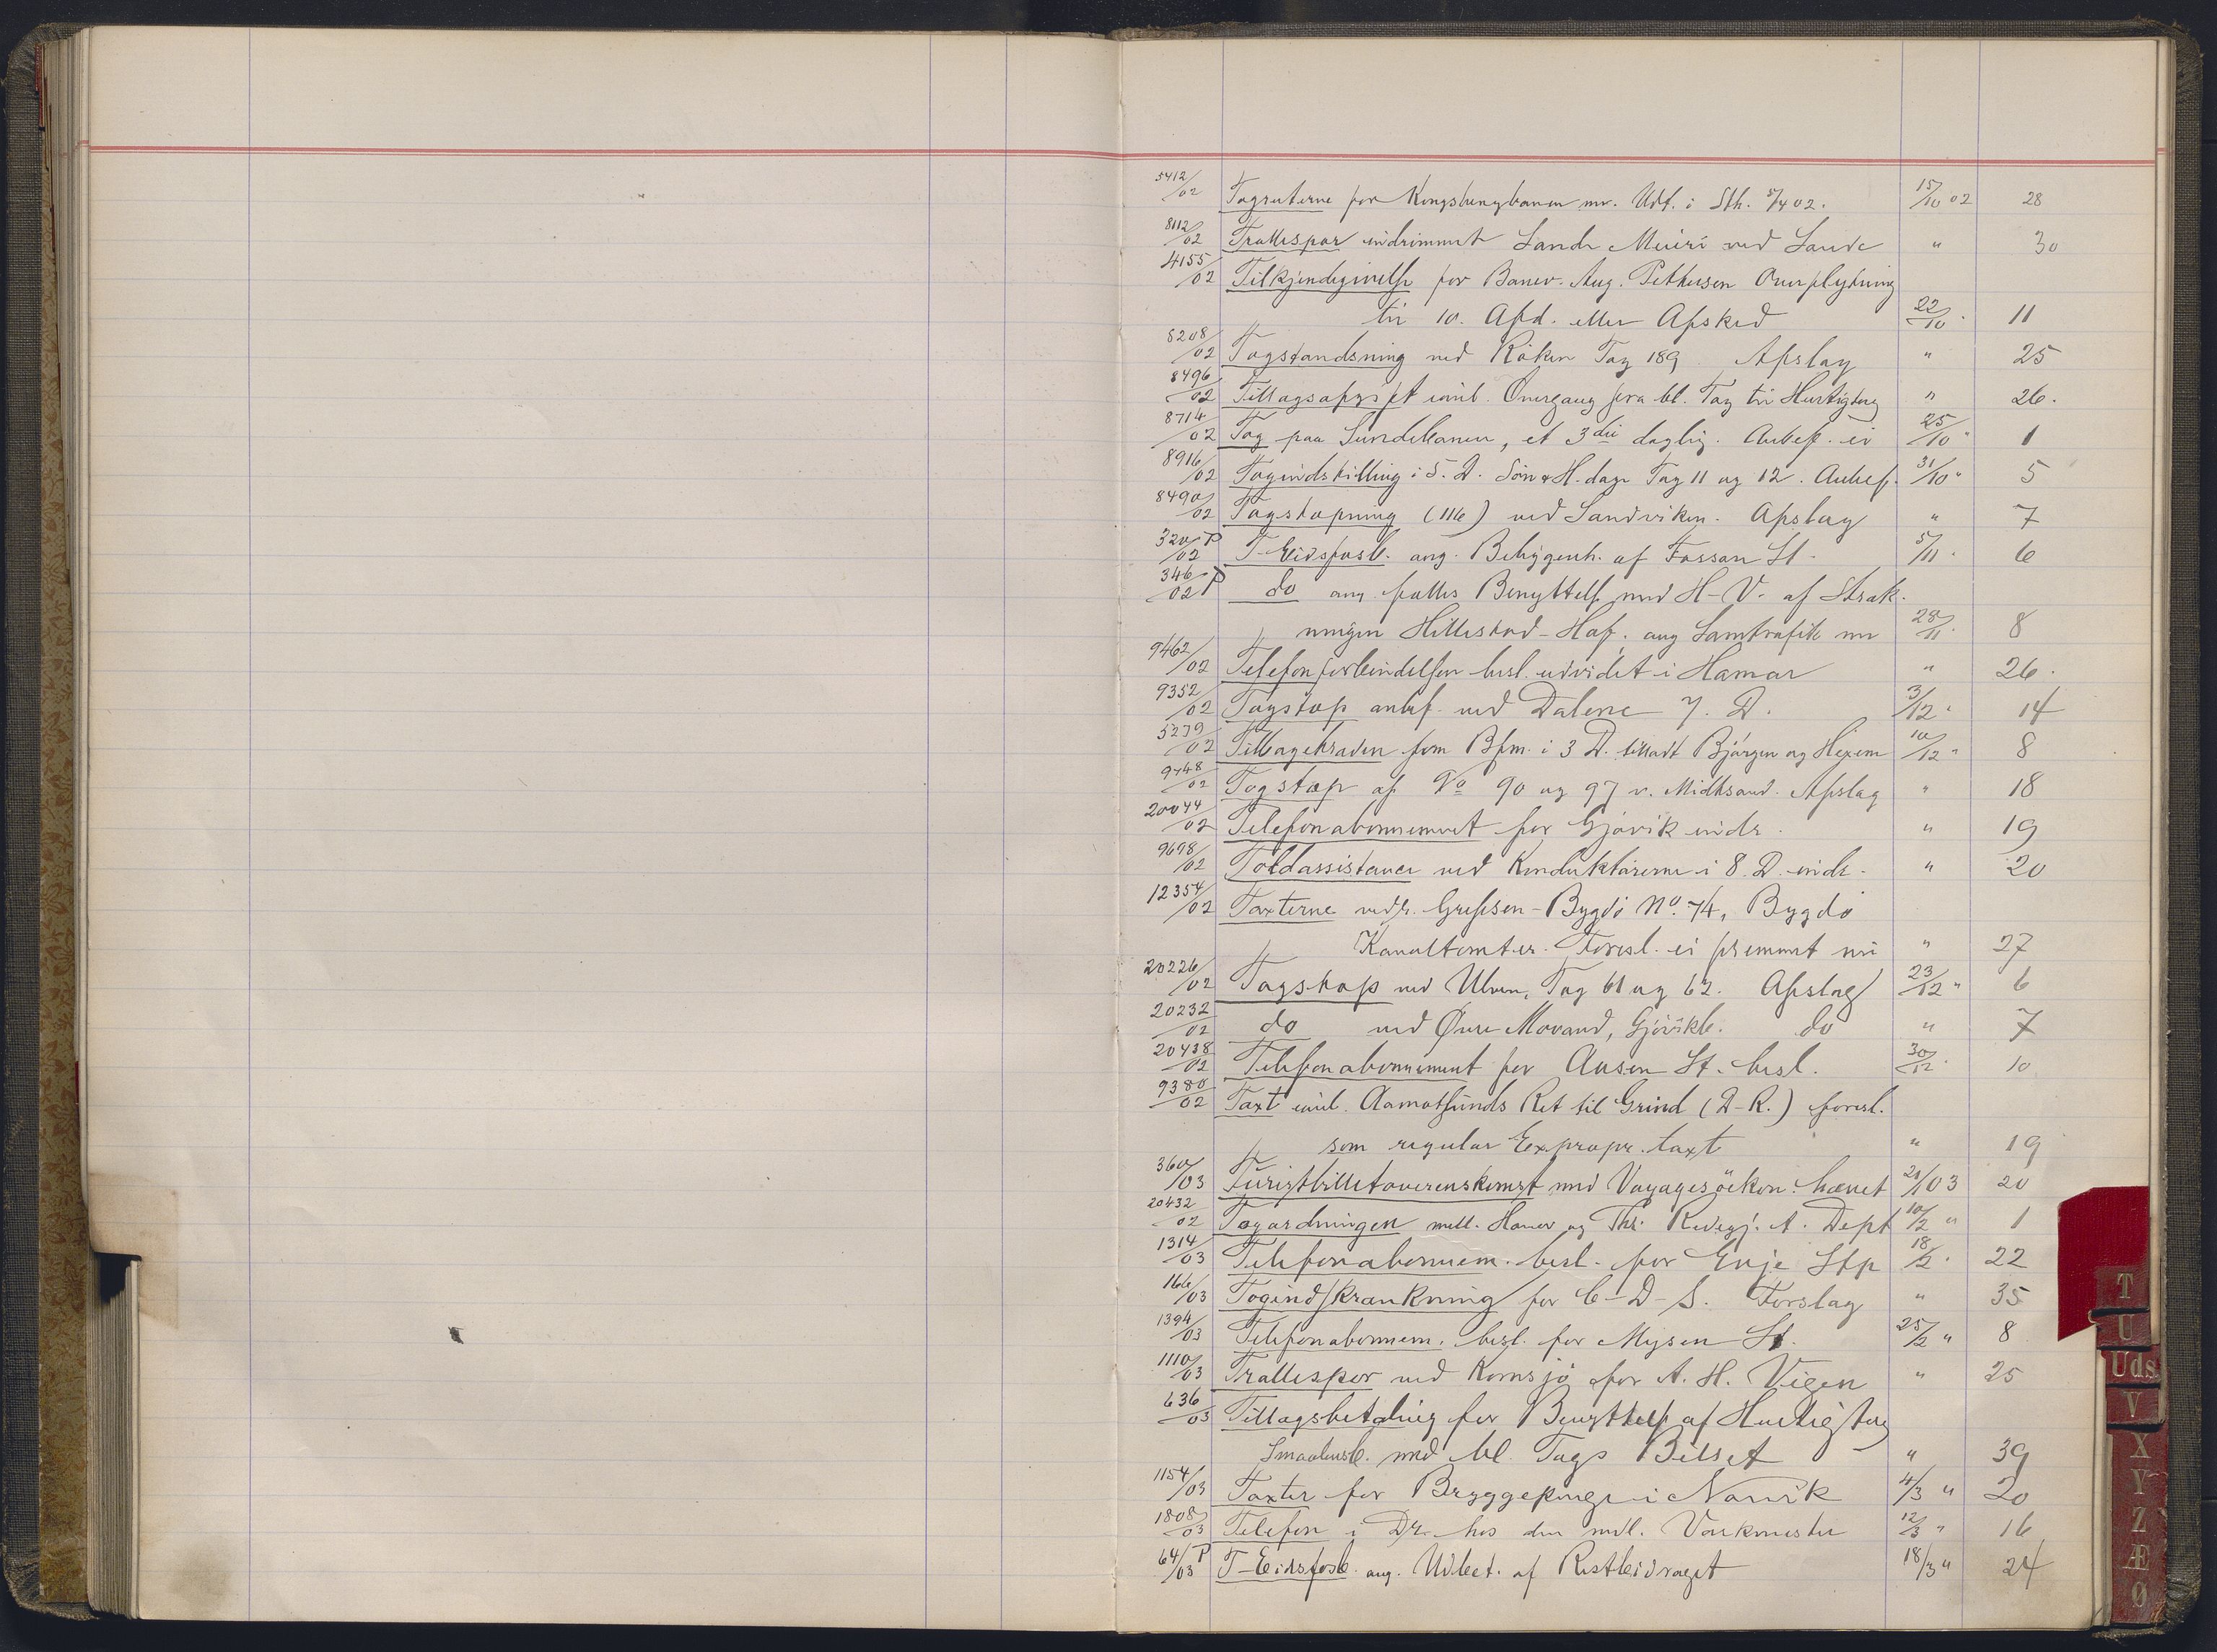 5412/02 Togruterne for Kongsbergbanen mv. Udt. i Sth. 5/4 02. 15/10 02 28
8112/02 Trallespor indrömmet Sande Meieri ved Sande " 30
4155/02 Tilkjendegivelse for Banev. Aug. Pettersen Overflytning
til 10. Afd. eller Afsked 22/10 " 11
8208/02 Togstandsning ved Röken Tog 189 Afslag " 25
8496/02 Tillægsafgift Overgang fra bl. Tog til Hurtigtog " 26.
8714/02 Tog paa , et 3die daglig. Anbef. ei 25/10 " 1
8916/02 Togindstilling i 5. D. Søn & H. dage Tog 11 og 12. Anbef. 31/10 " 5
8490/02 Togstopning (116) ved Sandviken. Afslag " 7
320/02 P T-Eidsfosb. ang. Bebyggelse af Fossan St. 5/11 " 6
346/02 P do ang. fælles Benyttelse med H-V. af Stræk-
ningen Hillestad-Hof. ang Samtrafik 28/11 " 8
9462/02 Telefonforbindelsen besl. udvidet i Hamar " 26.
9352/02 Togstop anbef. ved Dalene 7. D. 3/12 " 14
5279/02 Tilbagetræden som Bfm. i 3 D. tilladt Bjørgen og Hexem 10/12 " 8
9748/02 Togstop af No 90 og 97 v. Midtsand. Afslag " 18
20044/02 Telefonabonnement for Gjövik indr. " 19
9698/02 Toldassistance ved Konduktörerne i 8. D. indr. " 20
12354/02 Taxterne vedr. Grefsen-Bygdö No. 74, Bygdö
Kanaltomter. Foresl. ei fremmet " 27
20226/02 Togstop ved Ulven, Tog 61 og 62. Afslag 23/12 " 6
20232/02 do ved Øvre Movand, Gjövikb. do " 7
20438/02 Telefonabonnement for Ausen St. besl. 30/12 " 10
9380/02 Taxt Aamotsunds Ret til Grind (D-R.) foresl.
som regulær Expropr. taxt " 19
360/03 Turistbilletoverenskomst med Voyagesöekon: hævet 21/1 03 20
20432/02 Togordningen mell. Hamar og Thr. Redegj. A. Dept 10/2 " 1
1314/03 Telefonabonnem. besl. for Evje Stp 18/2 " 22
166/03 Togindskrænkning for C-D-S. Forslag " 35
1394/03 Telefonabonnem. besl. for Mysen St. 25/2 " 8
1110/03 Trallespor ved Kornsjö for A. H. Vigen " 25
636/03 Tillægsbetaling for Benyttelse af Hurtigtog
Smaalensb. med bl. Togs Billet " 39
1154/03 Taxter for Bryggepenge i Narvik 4/3 " 20
1808/03 Telefon i Dr. hos den midl. Værkmester 12/3 " 16
64/03 P T-Eidsfosb. ang. Udbet. af Restbidraget 18/3 " 24
T
U
Uds
V
X
Y
Z
Æ
Ø